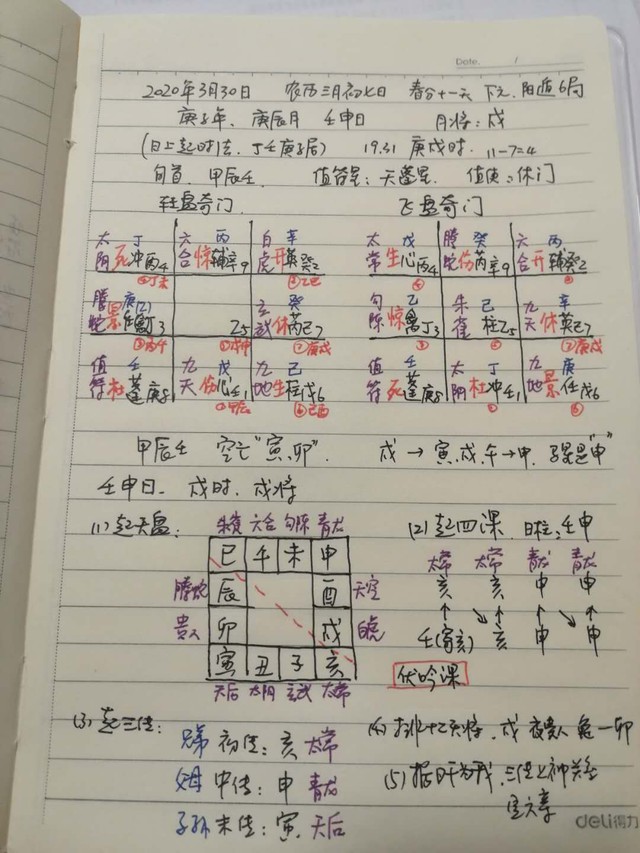 Date. /
2020年3月30日 农历三月初七日 春分十一天 下元.阳遁6局
庚子年、庚辰月 壬申日 月将:戌
(日上起时法.丁壬庚子居) 19.31 庚戌时. 11-7=4
旬首.甲辰壬 值符星:天蓬星. 值使:休门
转盘奇门 飞盘奇门
太 丁 六 丙 白 辛 太 戊 螣 癸 六 丙
阴 死冲丙4 合 惊辅辛9 虎 开英癸2 常 生心丙4 蛇 伤芮辛9 合 开辅癸2
④丁未 ②乙巳
螣 庚 乙5 玄 癸 勾 乙 朱 己 九 辛
蛇 景任丁3 武 休芮己7 陈 惊禽丁3 雀 柱乙5 天 休英己7
③丙午 ⑤戊申 ⑦庚戌 ⑦庚戌
值 壬 九 戊 九 己 值 壬 太 丁 九 庚
符 杜蓬庚8 天 伤心壬1 地 生柱戊6 符 死蓬庚8 阴 杜冲壬1 地 景任戊6
①甲辰 ⑥己酉
甲辰壬 空亡"寅.卯". 戌→寅.戌.午→申.
壬申日、戌时.戌将
(1)起天盘: 朱雀 六合 勾陈 青龙 (2)起四课.日柱:壬申
巳 午 未 申 太常 太常 青龙 青龙
螣蛇 辰 酉 天空 亥 亥 申 申
贵人 卯 戌 白虎 壬(寄亥) 亥 申 申
寅 丑 子 亥 伏吟课
天后 太阴 玄武 太常
(3)起三传: (4)排十二天将.戌 夜贵人 兔—卯
兄弟 初传:亥 太常
父母 中传:申 青龙 (5)据日干为我.三传之神
子孙 末传:寅.天后
deli得力